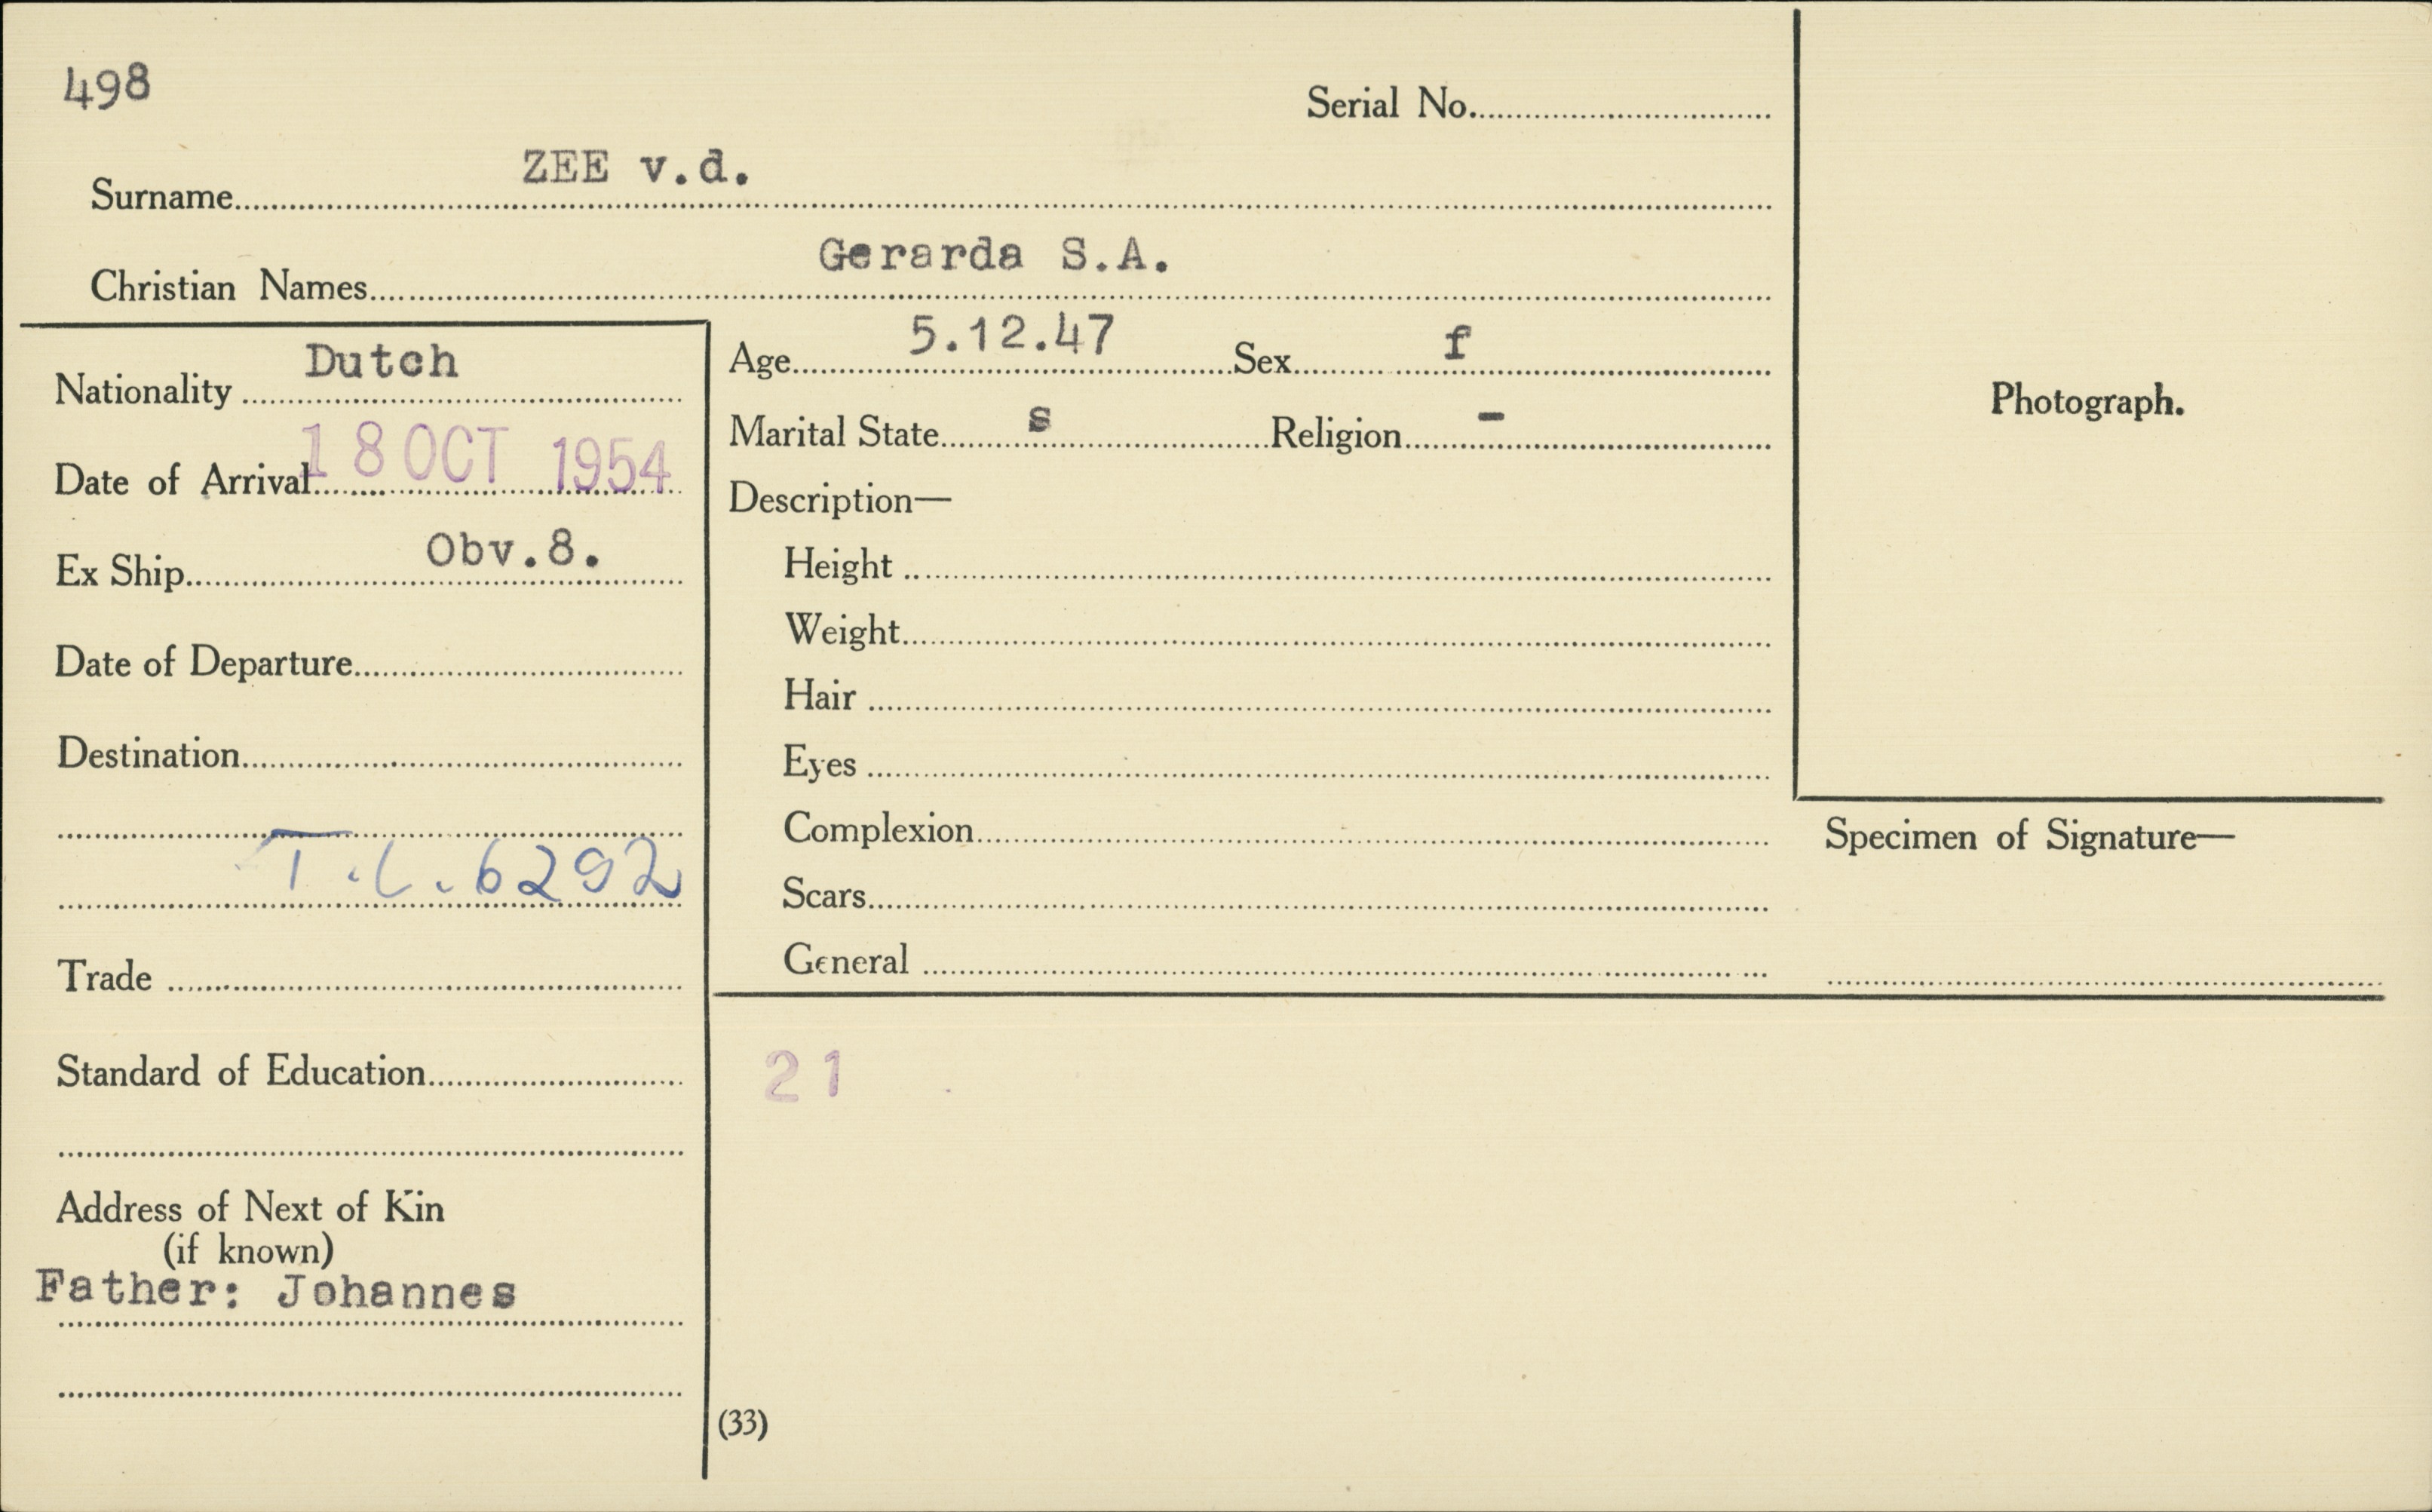 498
Serial No.
Surname ZEE v.d.
Christian Names Gerarda S.A.
Nationality Dutch
Date of Arrival 18 OCT 1954
Ex Ship Obv.8.
Date of Departure
Destination
T.C. 6292
Trade
Standard of Education
Address of Next of Kin
(if known)
Father: Johannes
Age 5.12.47 Sex f
Marital State s Religion -
Description—
Height
Weight
Hair
Eyes
Complexion
Scars
General
21
(33)
Photograph.
Specimen of Signature—